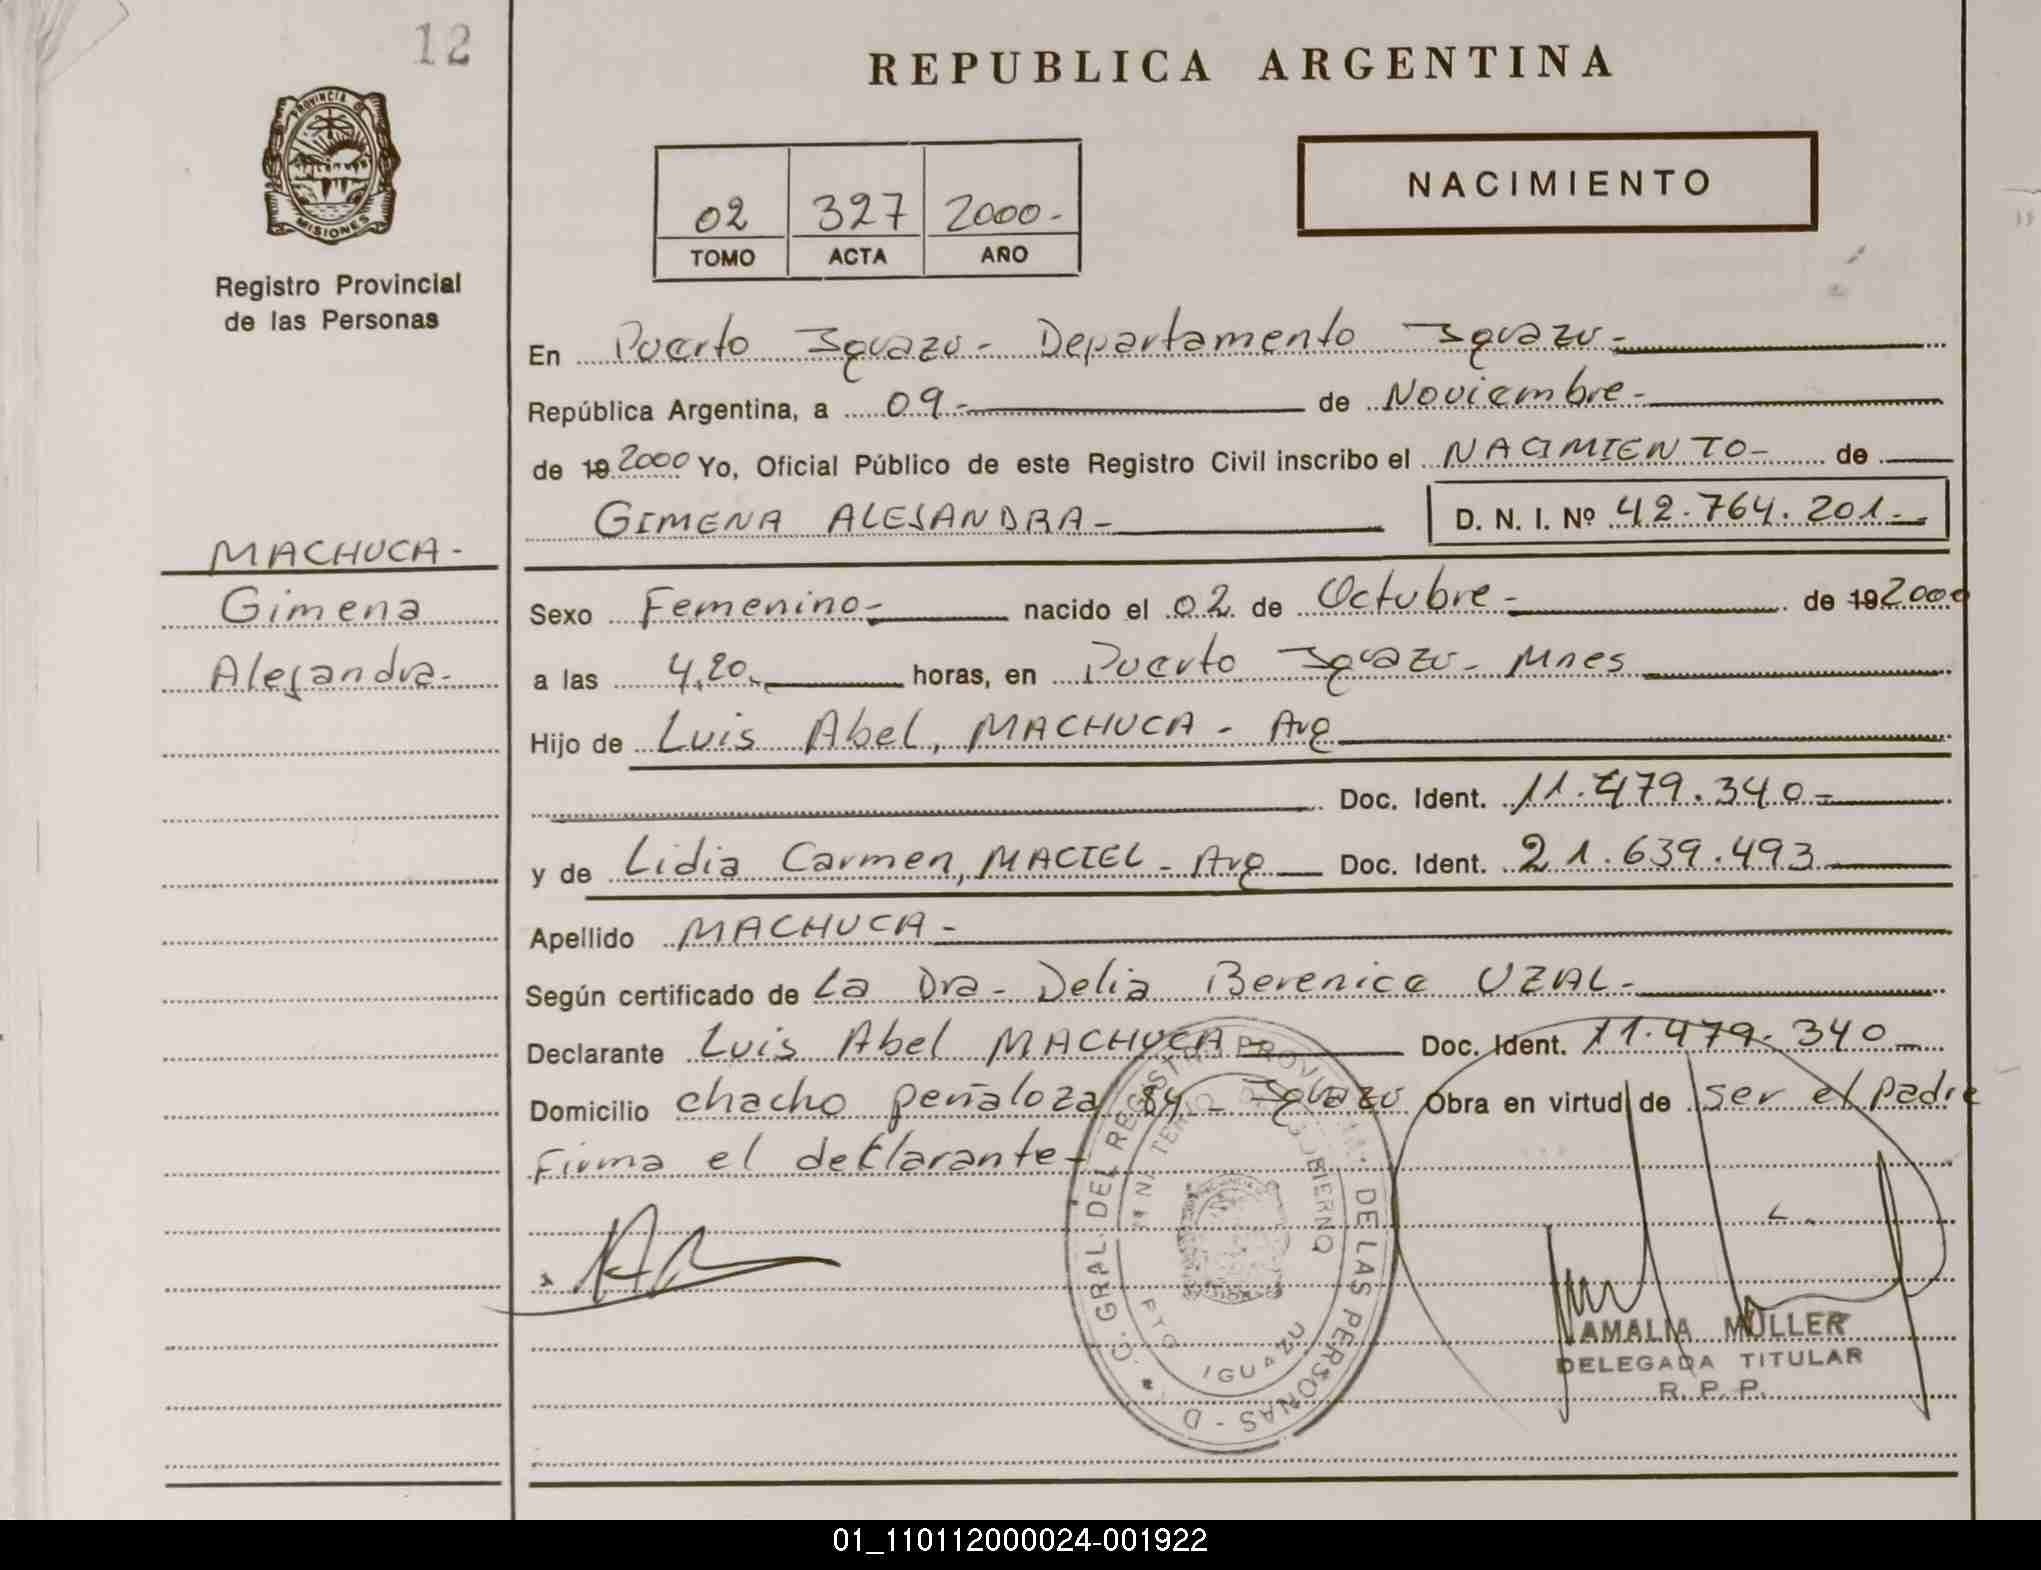 12
REPUBLICA ARGENTINA
PROVINCIA DE
MISIONES
Registro Provincial
de las Personas
02 327 2000-
TOMO ACTA AÑO
NACIMIENTO
En Puerto Iguazu - Departamento Iguazu -
República Argentina, a 09 - de Noviembre -
de 19 2000 Yo, Oficial Público de este Registro Civil inscribo el NACIMIENTO - de
GIMENA ALEJANDRA - D. N. I. Nº 42.764.201 -
MACHUCA -
Gimena
Alejandra -
Sexo Femenino - nacido el 02 de Octubre - de 19 2000
a las 4,20 horas, en Puerto Iguazu - Mnes
Hijo de Luis Abel, MACHUCA - Arg
Doc. Ident. 11.479.340 -
y de Lidia Carmen, MACIEL - Arg Doc. Ident. 21.639.493
Apellido MACHUCA -
Según certificado de La Dra - Delia Berenice UZAL -
Declarante Luis Abel MACHUCA - Doc. Ident. 11.479.340
Domicilio chacho peñaloza 84 - Iguazu Obra en virtud de ser el padre
Firma el detlarante -
GRAL. DEL REGISTRO PROVINCIAL DE LAS PERSONAS - D
GOBIERNO
PTO IGUAZU
AMALIA MULLER
DELEGADA TITULAR
R. P. P.
01_110112000024-001922